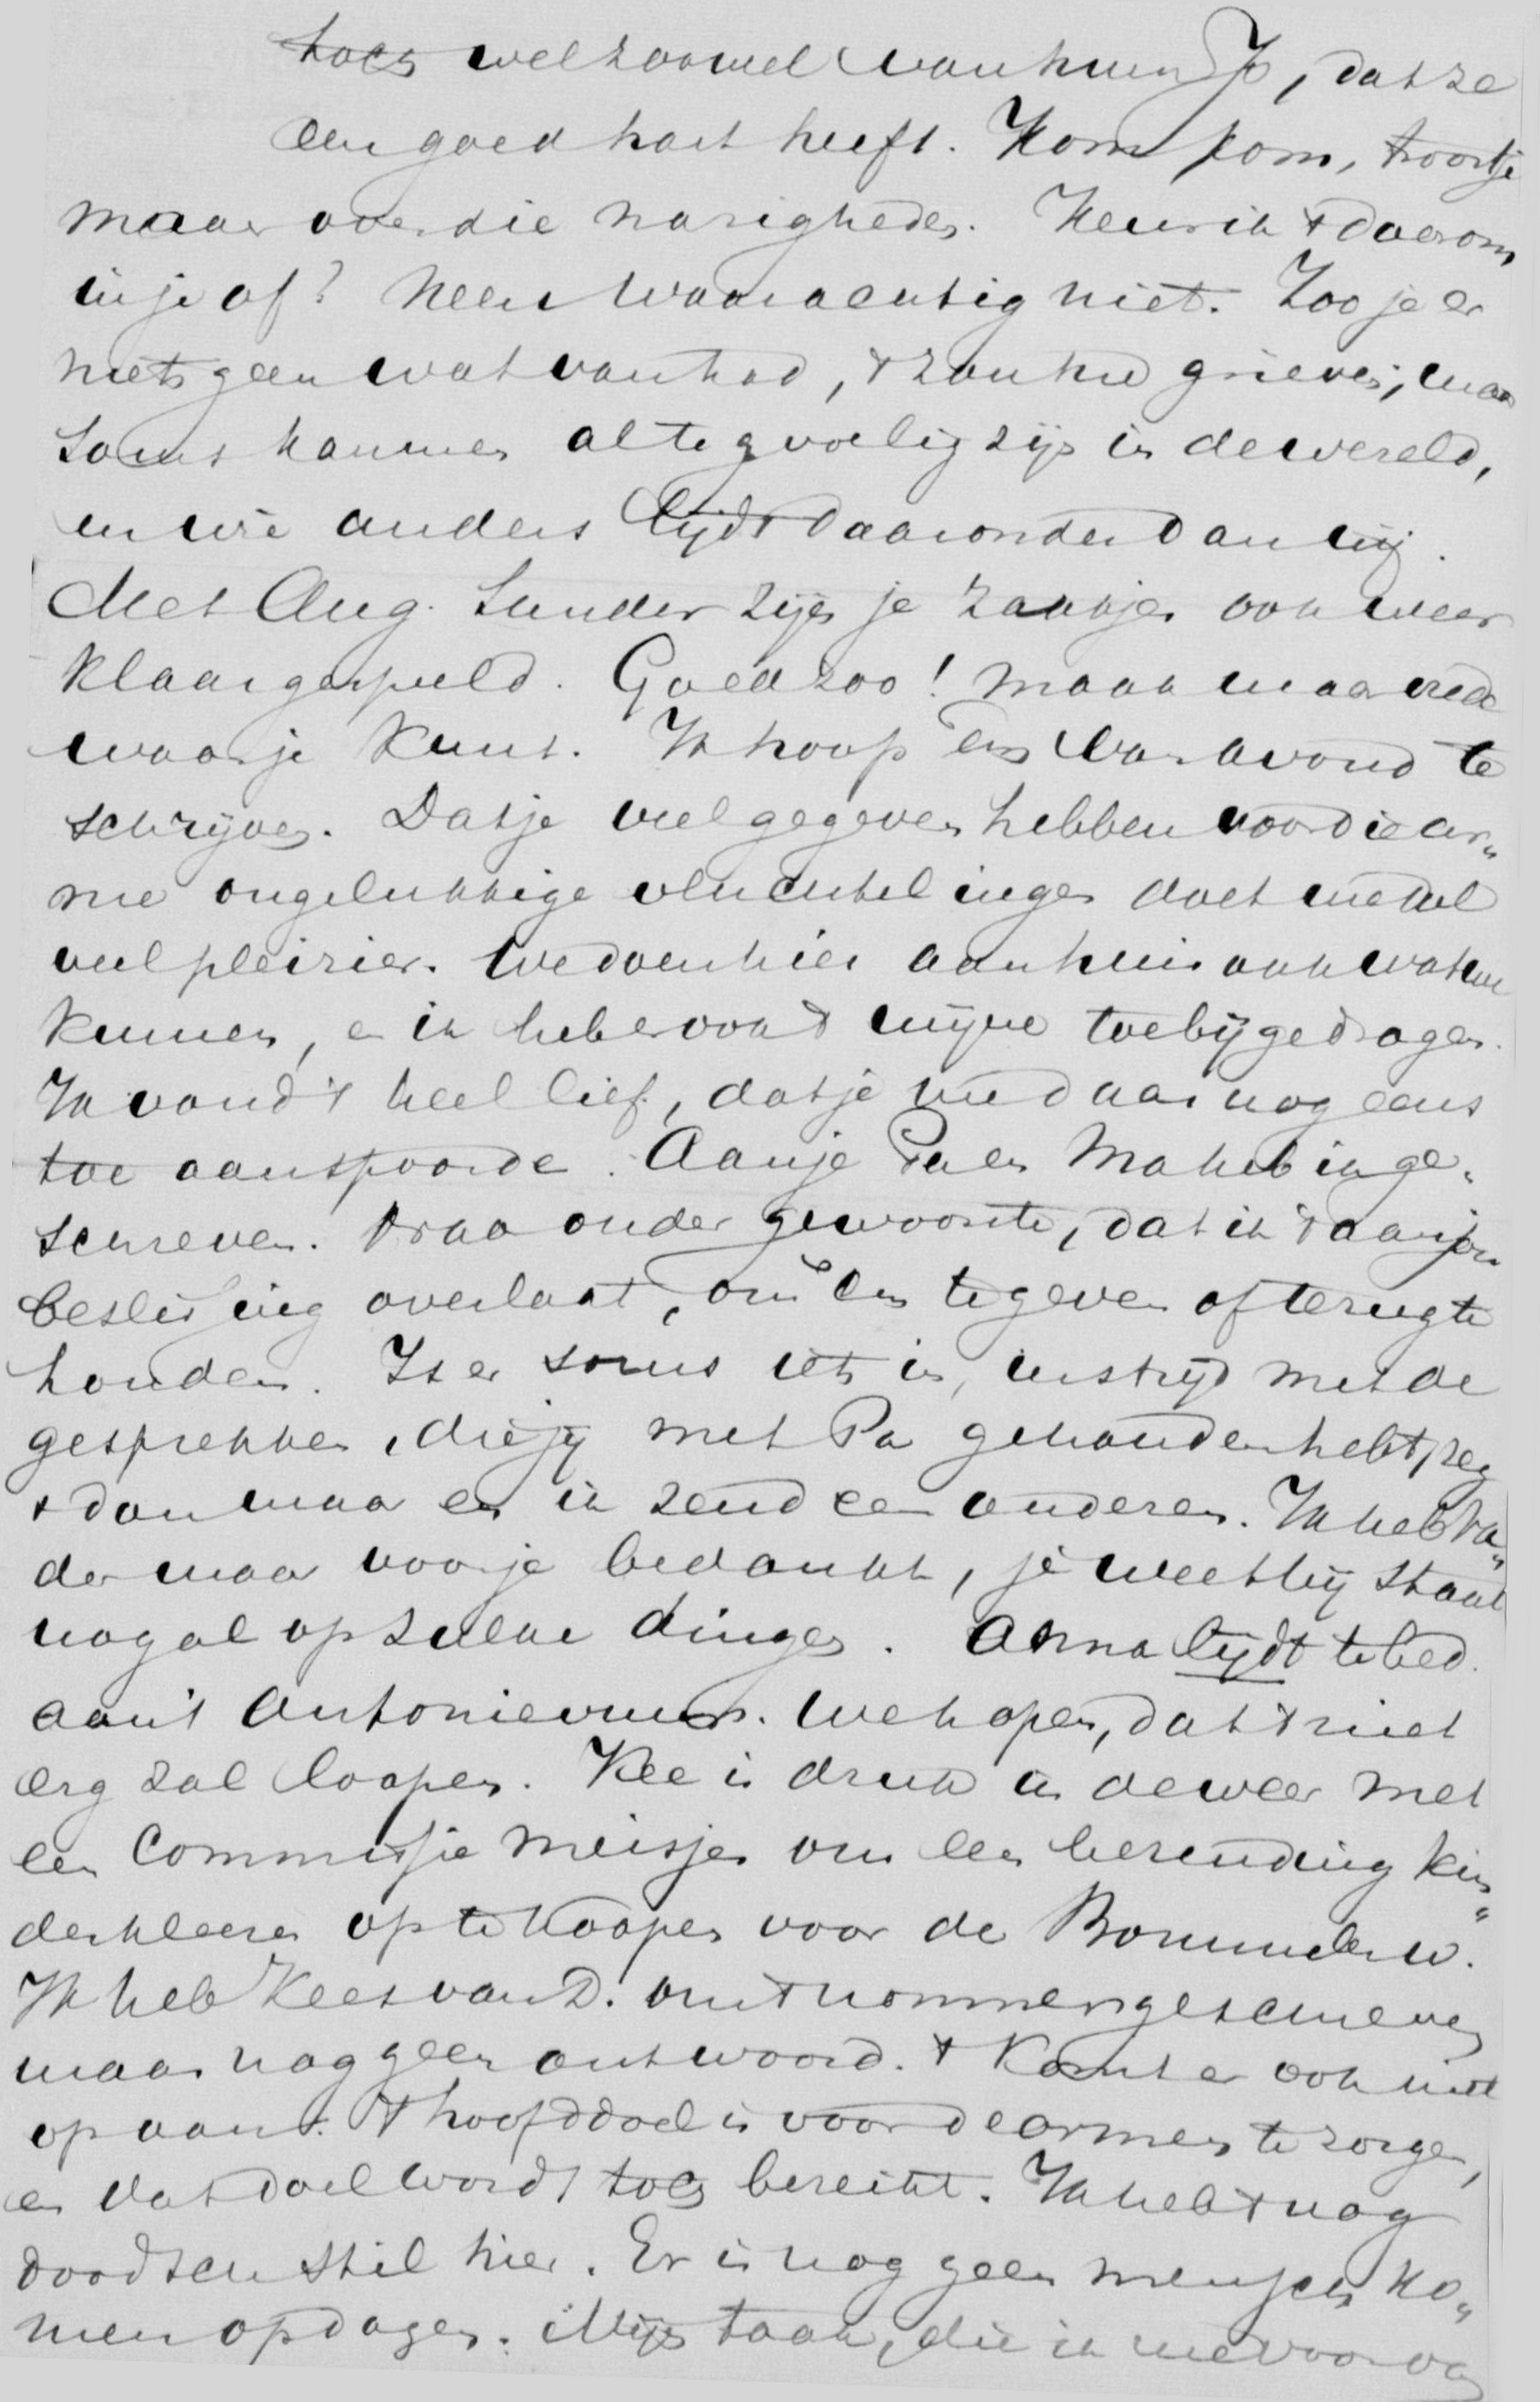 toch wel zooveel van hun Jo, dat ze
een goed hart heeft. Kom kom, troost je
maar over die narigheden. Keur ik 't daarom
in je af? Neen waarachtig niet. Zoo je er
niets geen wat van had, 't zou me grieven, maar
soms kan men al te gvoelig zijn in de wereld,
en wie anders lijdt daaronder dan wij.
Met Aug. Sunder zijn je zaakjes ook weer
klaar gespeeld. Goed zoo! maak maar vrede
waar je kunt. Ik hoop en van avond te
schrijven. Dat je veel gegeven hebben voor die ar„
me ongelukkige vluchtelingen doet me wel
veel pleizier. We doen hier aan huis ook wat we
kunnen, en ik heb er ook 't mijne toe bijgedragen.
Ik vond 't heel lief, dat je me daar nog eens
toe aanspoorde. Aan je Pa en Ma heb ik ge„
schreven. Draag onder gewoonte, dat ik 't aan jou
beslissing overlaat, om en te geven of terug te
houden. Is er soms iets in, in strijd met de
gesprekken, die jij met Pa gehouden hebt, zeg
't dan maar en ik zend een anderen. Ik heb Va„
der maar voor je bedankt, je weet hij staat
nog al op zulke dingen. Anna lijdt te bed
aan 't Antonievuur. We hopen, dat 't niet
erg zal loopen. Kee is druk in de weer met
een Commissie meisjes om een bezending kin„
derkleeren op te koopen voor de Bommelerw.
Ik heb Kees van D. om 't nommer geschreven
maar nog geen antwoord. 't Komt er ook niet
op aan. 't hoofddoel is voor de armen te zorgen,
en dat doel wordt toch bereikt. Ik heb 't nog
doodsch stil hier. Er is nog geen mensch ko„
men opdagen. Mijn taak, die ik me voor